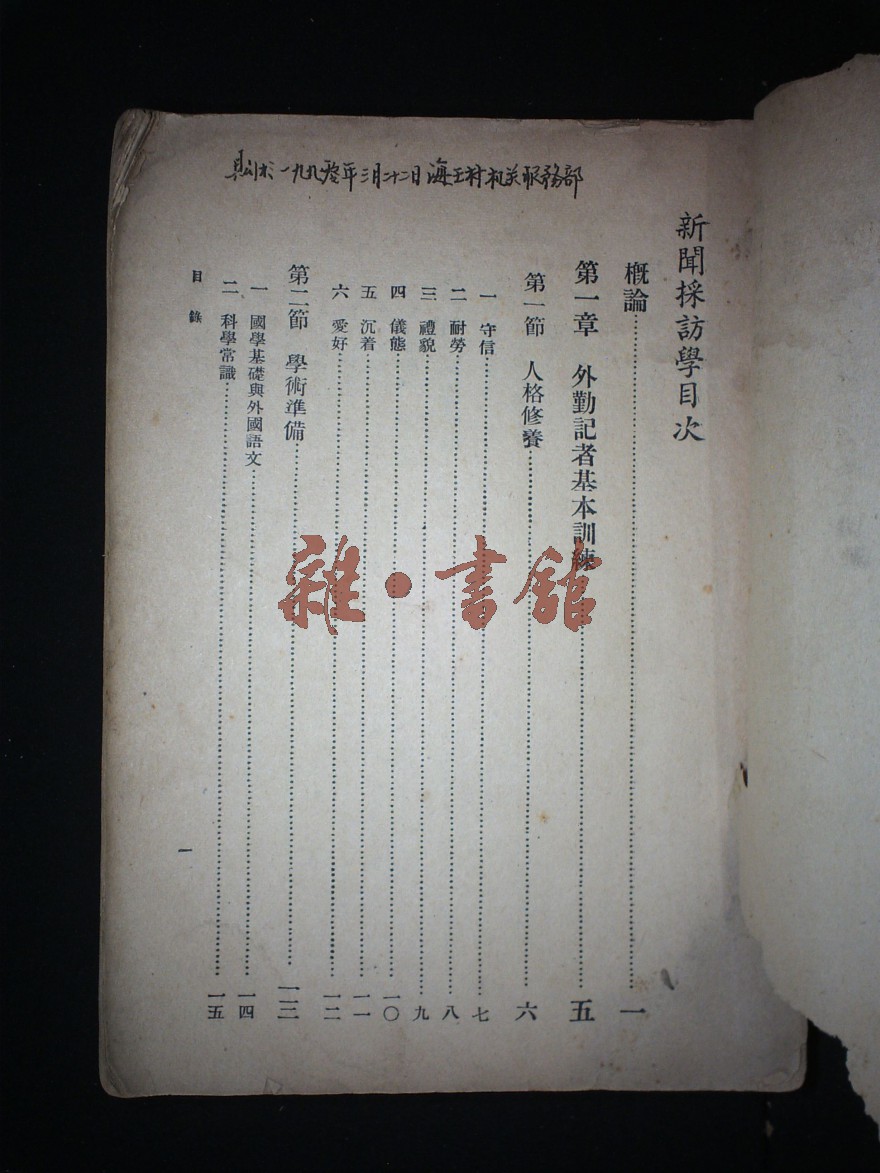 购于一九九零年三月二十二日海王村机关服务部
新聞採訪學目次
概論……一
第一章 外勤記者基本訓練……五
第一節 人格修養……六
一 守信……七
二 耐勞……八
三 禮貌……九
四 儀態……一〇
五 沉着……一一
六 愛好……一二
第二節 學術準備……一三
一 國學基礎與外國語文……一四
二 科學常識……一五
目錄
一
雜·書館